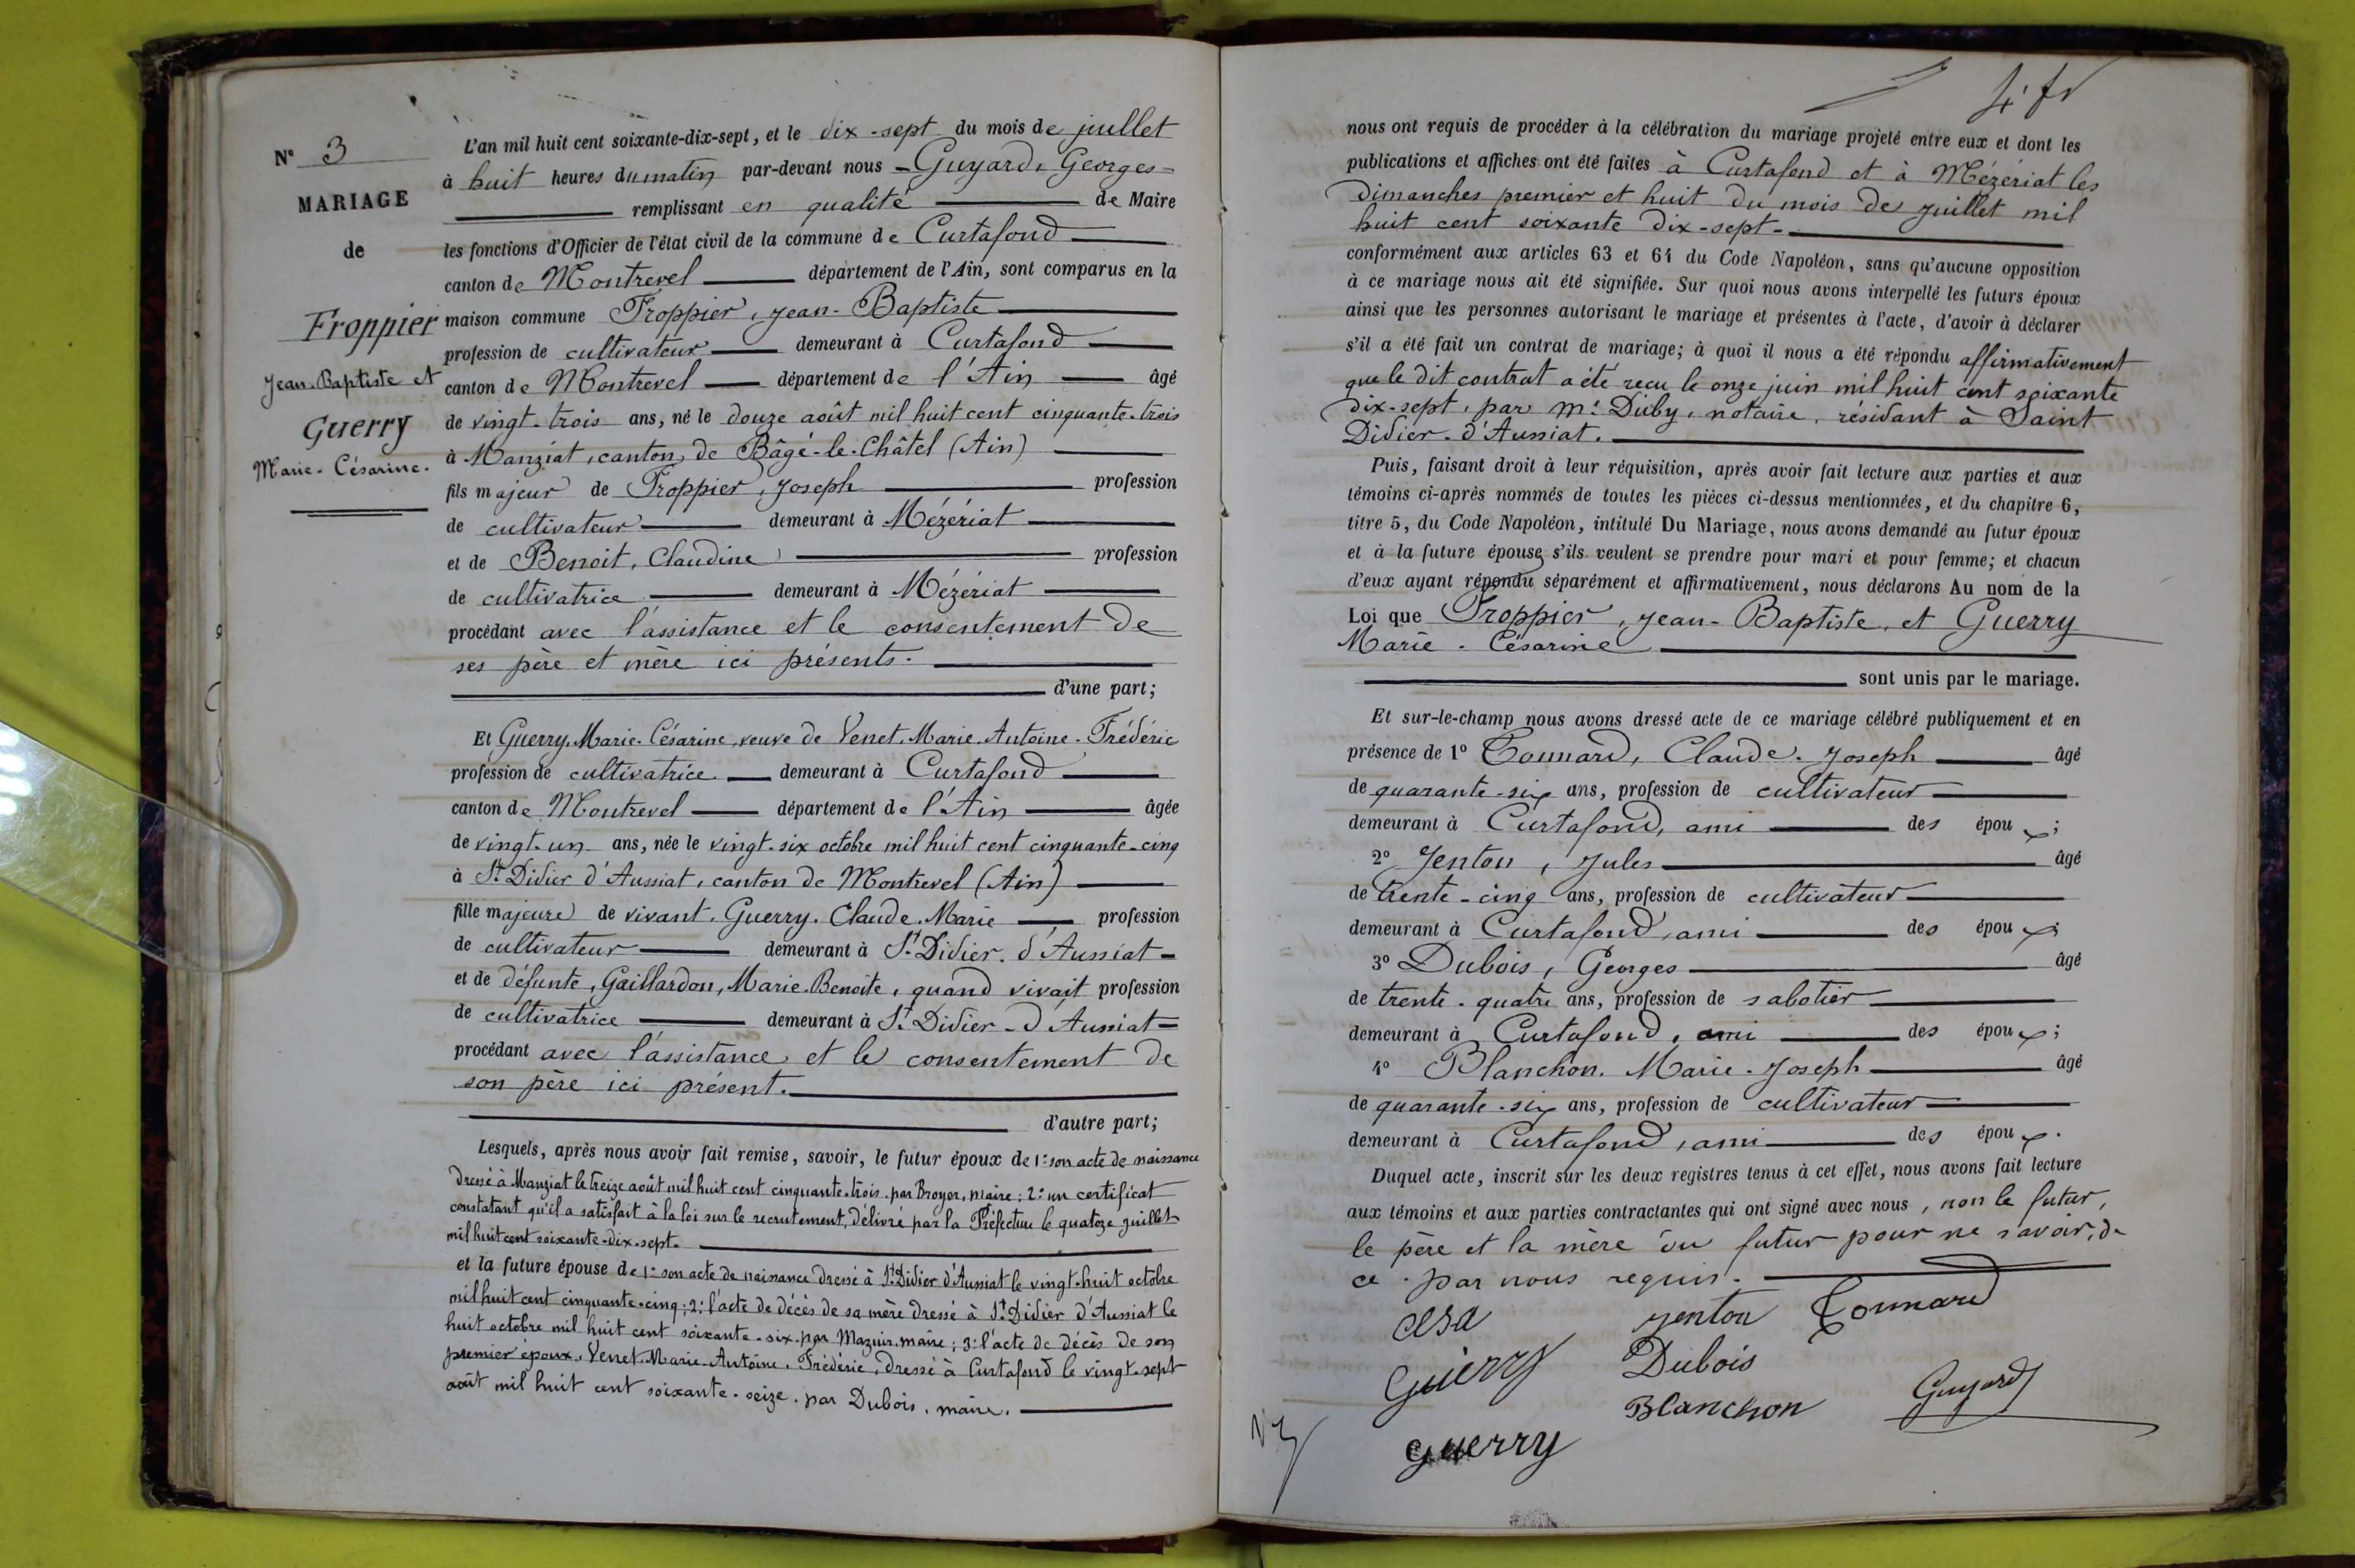 N° 3
MARIAGE
de
Froppier
Jean-Baptiste et
Guerry
Marie-Césarine.
L'an mil huit cent soixante-dix-sept, et le dix-sept du mois de juillet
à huit heures du matin par-devant nous Guyard, Georges
remplissant en qualité de Maire
les fonctions d'Officier de l'état civil de la commune de Curtafond
canton de Montrevel département de l'Ain, sont comparus en la
maison commune Froppier, Jean-Baptiste
profession de cultivateur demeurant à Curtafond
canton de Montrevel département de l'Ain âgé
de vingt-trois ans, né le douze août mil huit cent cinquante-trois
à Manziat, canton de Bâgé-le-Châtel (Ain)
fils majeur de Froppier, Joseph profession
de cultivateur demeurant à Mézériat
et de Benoit, Claudine profession
de cultivatrice demeurant à Mézériat
procédant avec l'assistance et le consentement de
ses père et mère ici présents.
d'une part;
Et Guerry, Marie-Césarine, veuve de Venet, Marie-Antoine-Frédéric
profession de cultivatrice demeurant à Curtafond
canton de Montrevel département de l'Ain âgée
de vingt-un ans, née le vingt-six octobre mil huit cent cinquante-cinq
à St Didier d'Aussiat, canton de Montrevel (Ain)
fille majeure de vivant, Guerry, Claude-Marie profession
de cultivateur demeurant à St Didier-d'Aussiat
et de défunte, Gaillardon, Marie-Benoite, quand vivait profession
de cultivatrice demeurant à St Didier-d'Aussiat
procédant avec l'assistance et le consentement de
son père ici présent.
d'autre part;
Lesquels, après nous avoir fait remise, savoir, le futur époux de 1° son acte de naissance
dressé à Manziat le treize août mil huit cent cinquante-trois, par Broyer, maire; 2° un certificat
constatant qu'il a satisfait à la loi sur le recrutement, délivré par la Préfecture le quatoze juillet
mil huit cent soixante-dix-sept.
et la future épouse de 1° son acte de naissance dressé à St Didier d'Aussiat le vingt-huit octobre
mil huit cent cinquante-cinq; 2° l'acte de décès de sa mère dressé à St Didier d'Aussiat le
huit octobre mil huit cent soixante-six, par Mazuir, maire; 3° l'acte de décès de son
premier époux, Venet, Marie-Antoine, Frédéric, dressé à Curtafond le vingt-sept
août mil huit cent soixante-seize, par Dubois, maire.
nous ont requis de procéder à la célébration du mariage projeté entre eux et dont les
publications et affiches ont été faites à Curtafond et à Mézériat les
dimanches premier et huit du mois de juillet mil
huit cent soixante dix-sept.
conformément aux articles 63 et 64 du Code Napoléon, sans qu'aucune opposition
à ce mariage nous ait été signifiée. Sur quoi nous avons interpellé les futurs époux
ainsi que les personnes autorisant le mariage et présentes à l'acte, d'avoir à déclarer
s'il a été fait un contrat de mariage; à quoi il nous a été répondu affirmativement
que le dit contrat a été reçu le onze juin mil huit cent soixante
dix-sept, par Me Duby, notaire, résidant à Saint
Didier-d'Aussiat.
Puis, faisant droit à leur réquisition, après avoir fait lecture aux parties et aux
témoins ci-après nommés de toutes les pièces ci-dessus mentionnées, et du chapitre 6,
titre 5, du Code Napoléon, intitulé Du Mariage, nous avons demandé au futur époux
et à la future épouse s'ils veulent se prendre pour mari et pour femme; et chacun
d'eux ayant répondu séparément et affirmativement, nous déclarons Au nom de la
Loi que Froppier, Jean-Baptiste, et Guerry
Marie-Césarine
sont unis par le mariage.
Et sur-le-champ nous avons dressé acte de ce mariage célébré publiquement et en
présence de 1° Tonnard, Claude-Joseph âgé
de quarante-six ans, profession de cultivateur
demeurant à Curtafond, ami des époux;
2° Jenton, Jules âgé
de trente-cinq ans, profession de cultivateur
demeurant à Curtafond, ami des époux;
3° Dubois, Georges âgé
de trente-quatre ans, profession de sabotier
demeurant à Curtafond, ami des époux;
4° Blanchon, Marie-Joseph âgé
de quarante-six ans, profession de cultivateur
demeurant à Curtafond, ami des époux.
Duquel acte, inscrit sur les deux registres tenus à cet effet, nous avons fait lecture
aux témoins et aux parties contractantes qui ont signé avec nous, non le futur,
le père et la mère du futur pour ne savoir, de
ce par nous requis.
Jenton Tonnard
Guerry Dubois
Blanchon Guyard
Guerry